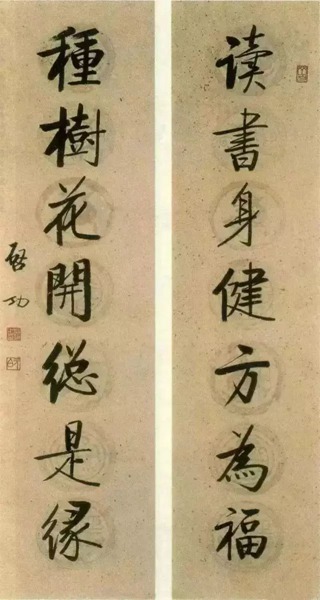 读书身健方为福
種樹花開總是緣
啓功